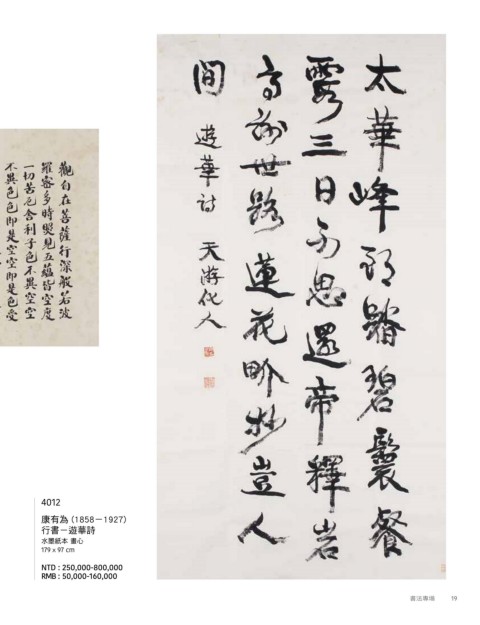 太華峰頭踏碧鬟餐
霞三日不思還帝釋岩
高謝世路蓮花豈人
間 遊華詩 天游化人
觀自在菩薩行深般若波
羅密多時照見五蘊皆空度
一切苦厄舍利子色不異空空
不異色色即是空空即是色受
4012
康有為 (1858－1927)
行書－遊華詩
水墨紙本 畫心
179 x 97 cm
NTD : 250,000-800,000
RMB : 50,000-160,000
書法專場 19